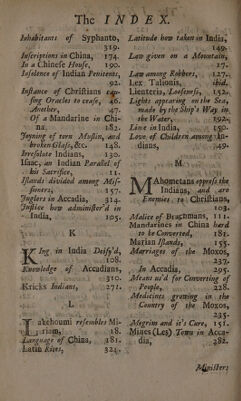 The INDEX.
Inhabitants of Syphanto,
319.
Inscriptions in China, 174.
In a Chinese House, 190.
Insolence of Indian Penitents,
92.
Instance of Christians cau-
sing Oracles to cease, 46.
Another, 47.
Of a Mandarine in Chi-
na. 182.
Joyning of torn Muslin, and
broken Glass, &c. 148.
Irresolute Indians, 130.
Isaac, an Indian Parallel of
his Sacrifice, 11.
Islands divided among Mis-
sioners, 157.
Juglers in Accadia, 314.
Justice how administer'd in
India, 105.
K
King in India Deify'd,
108.
Knowledge of Accadians,
310.
Kricks Indians, 271.
L
Lakehoumi resembles Mi-
riam, 18.
Language of China, 181.
Latin Rites, 324.
Latitude how taken in India,
149.
Law given on a Mountain,
27.
Law among Robbers, 127.
Lex Talionis, ibid.
Lienteria, Loosenness, 132.
Light appearing on the Sea,
made by the Ship's Way in
the Water, 192.
Line in India, 150.
Love of Children among In-
dians, 49.
M
Mahometans oppress the
Indians, and are
Enemies to Christians,
103.
Malice of Brachmans, 111.
Mandarines in China hard
to be Converted, 181.
Marian Islands, 155.
Marriages of the Moxos,
237.
In Accadia, 295.
Means us'd for Converting of
People, 228.
Medicines growing in the
Country of the Moxos,
235.
Megrim and it's Cure, 151.
Mines (Les) Town in Acca-
dia, 282.
Ministers